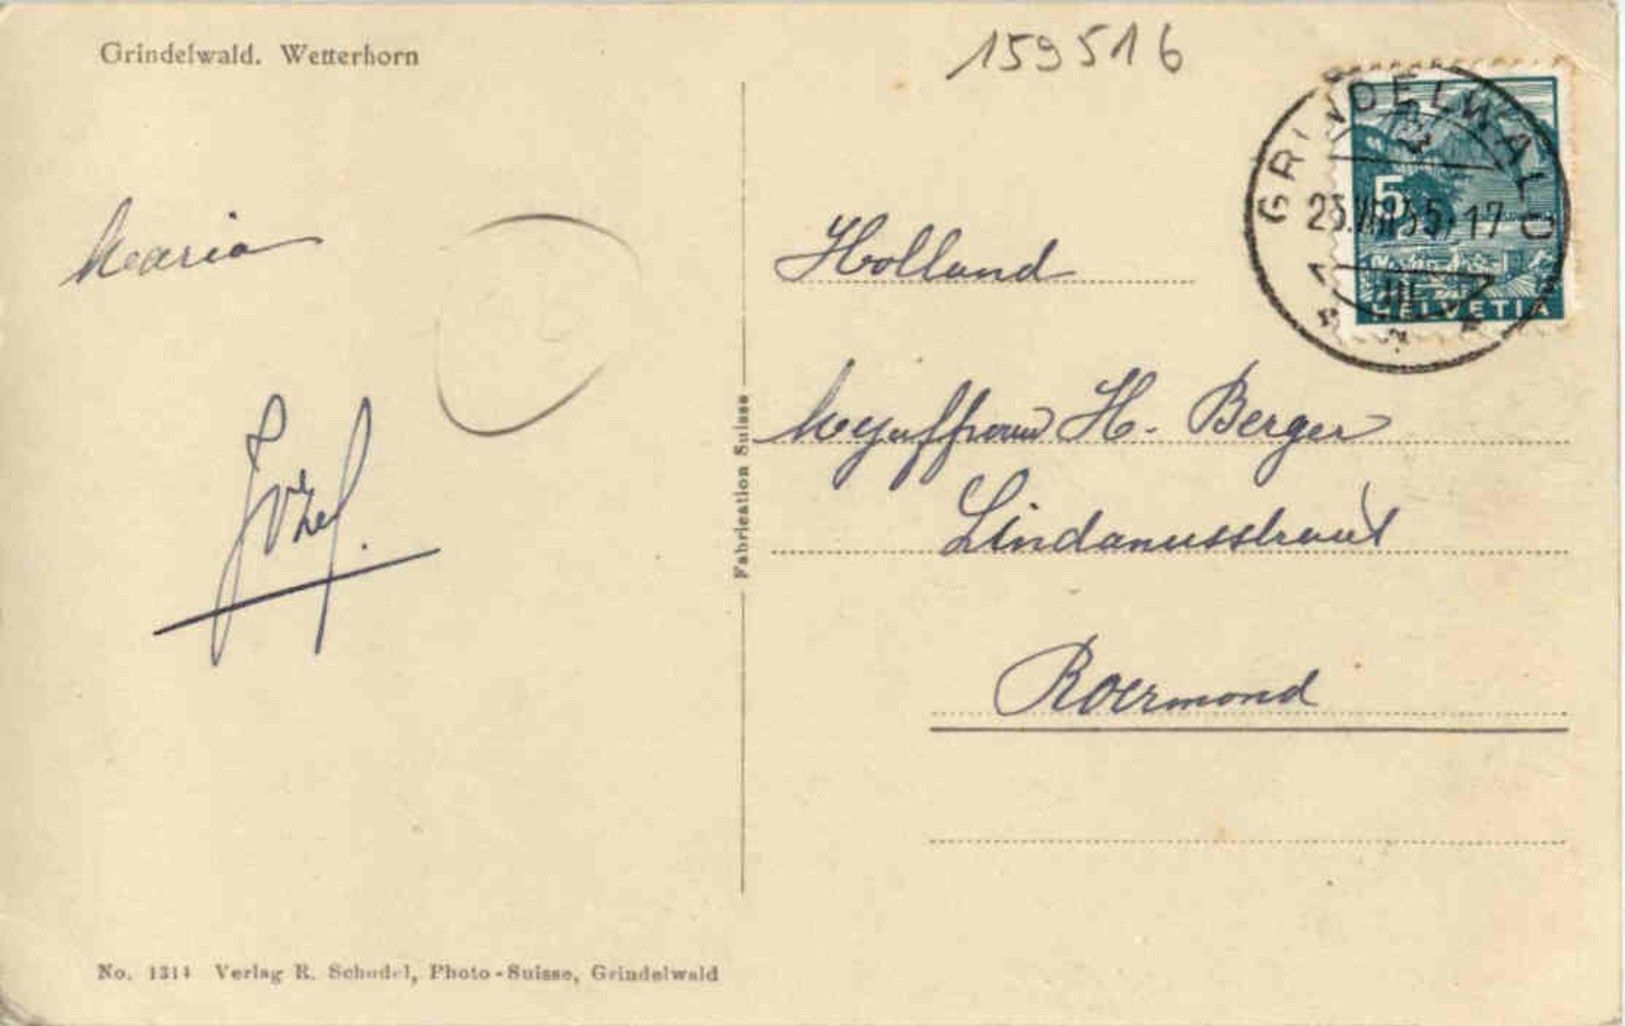 Grindelwald. Wetterhorn
159516
GRINDELWALD
23.VIII.35 17
5
HELVETIA
Maria
Jozef.
Holland
Mejuffrouw H. Berger
Lindanusstraat
Roermond
Fabrication Suisse
No. 1314 Verlag R. Schudel, Photo-Suisse, Grindelwald